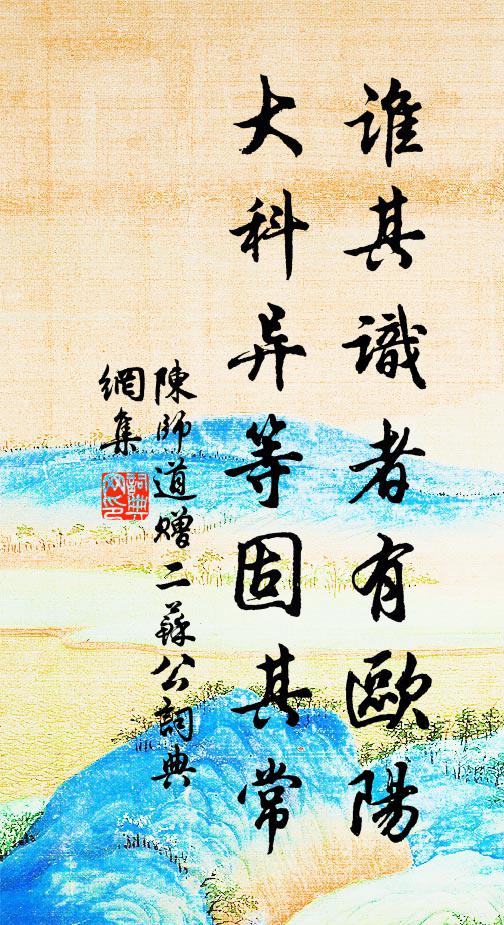 誰其識者有歐陽
大科异等固其常
陳師道贈二蘇公詞典
網集
詞典
网印